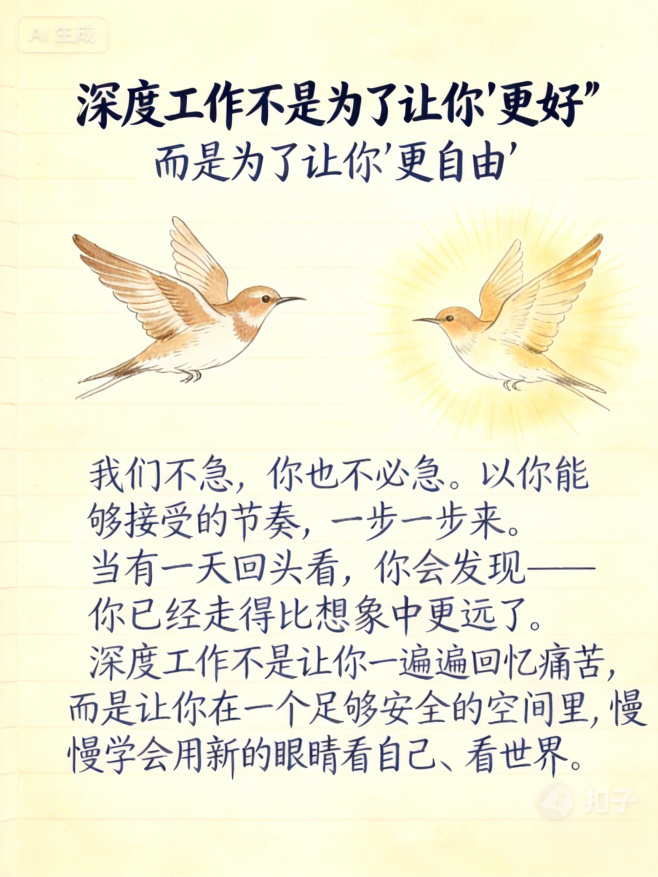 AI 生成
深度工作不是为了让你'更好”
而是为了让你'更自由'
我们不急，你也不必急。以你能
够接受的节奏，一步一步来。
当有一天回头看，你会发现——
你已经走得比想象中更远了。
深度工作不是让你一遍遍回忆痛苦，
而是让你在一个足够安全的空间里，慢
慢学会用新的眼睛看自己、看世界。
扣子